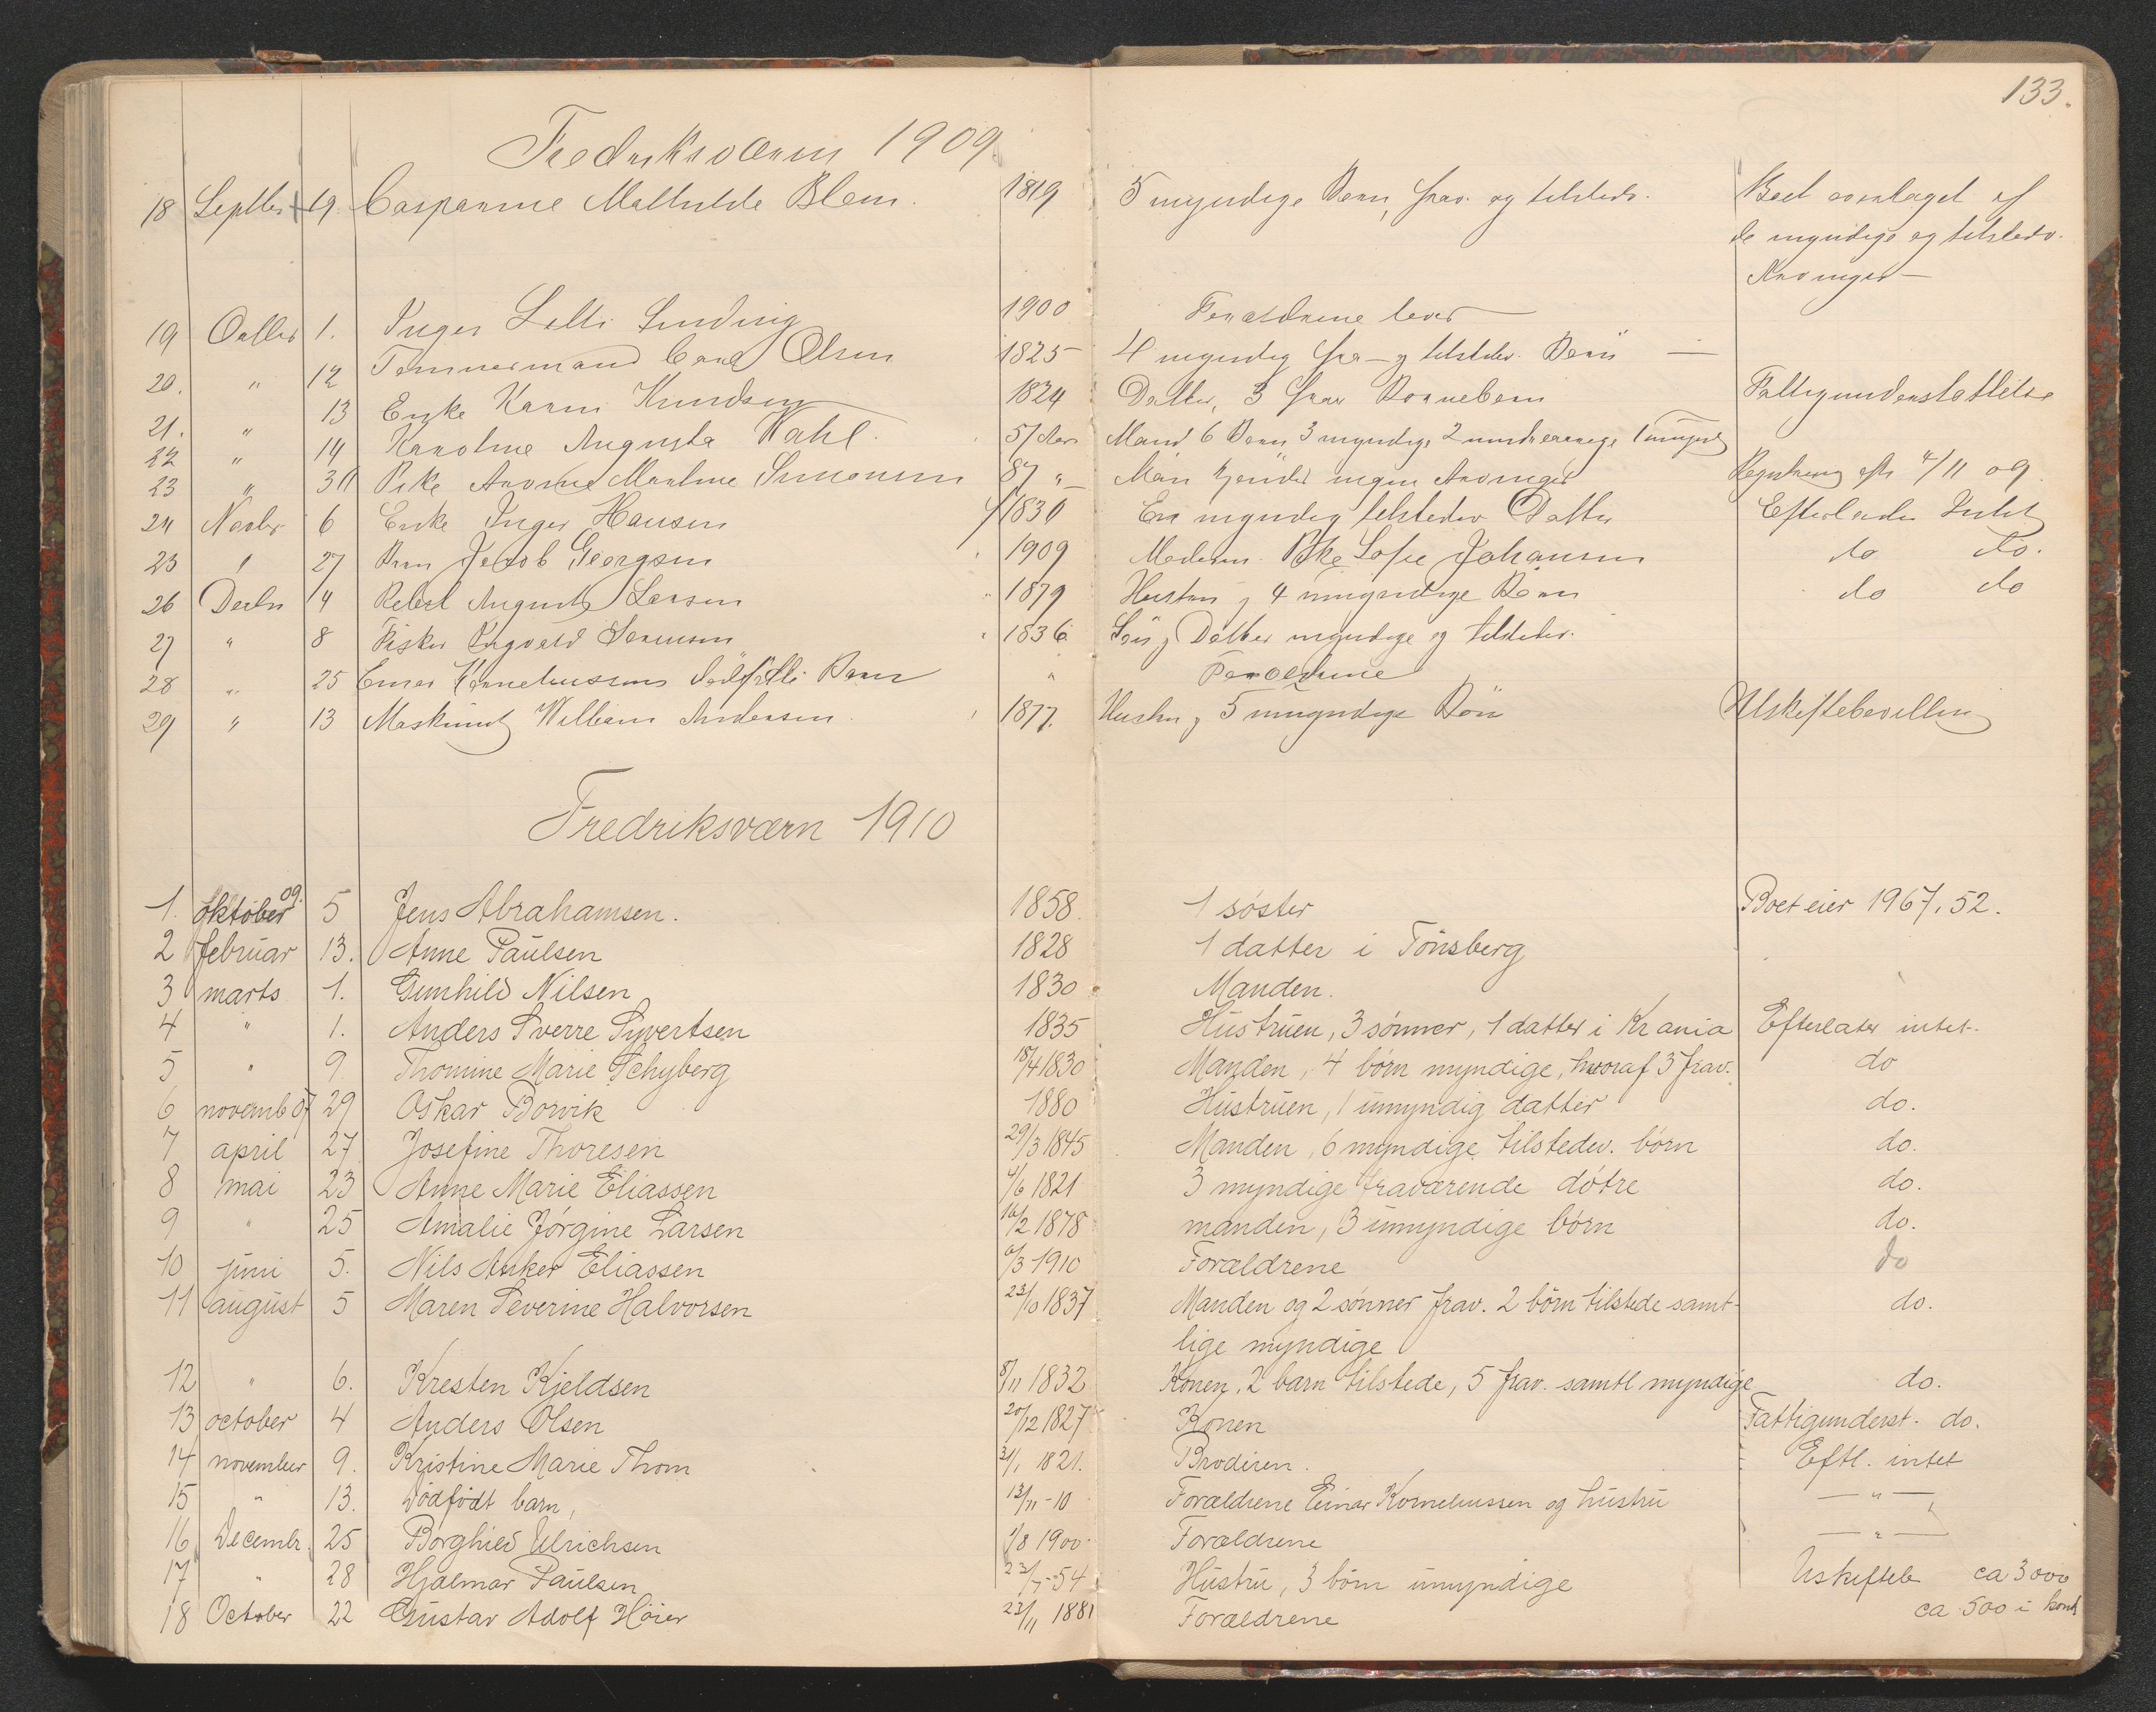 133.
Fredriksværn 1909
18 Septbr 19 Casparine Mathilde Blom. 1819 5 myndige Børn, frav. og tilstedv. Boet overtaget af
de myndige og tilstedv.
Arvinger —
19 Octbr 1. Inger Sunding 1900 Forældrene lever
20. " 12 Tømmermand Carl Olsen 1825 4 myndig fra- og tilstdv. Børn —
21. " 13 Enke Karen Knudsen 1824 Datter, 3 frav Børnebørn Fattigunderstøttelse
22 " 14 Karoline Augusta Wahl. 57 Aar Mand 6 Børn 3 myndige 2 mindreaarige 1 umynd
23 " 30 Pike Martine Simonsen 87 " Man kjender ingen Arvinger Registrering efter 4/11 09
24 Novbr 6 Enke Inger Hansen 1830 En myndig tilstedev Datter Efterlader Intet
25 " 27 Barn Jacob Georgsen 1909 Moderen Pike Sofie Johansen do do.
26 Decbr 4 August Larsen 1879 Hustru og 4 umyndige Børn do do
27 " 8 Fisker Ingvald Sørensen 1836 Søn og Datter myndige og tilstedev.
28 " 25 Einar Korneliussens dødfødte Barn " Forældrene
29 " 13 Maskinist William Andersen 1877. Hustru og 5 umyndige Børn Uskiftebevilling
Fredriksværn 1910
1. oktober 09. 5 Jens Abrahamsen. 1858. 1 søster Boet eier 1967,52.
2 februar 13. Anne Paulsen 1828 1 datter i Tönsberg
3 marts 1. Gunhild Nilsen 1830 Manden.
4 " 1. Anders Sverre Syvertsen 1835 Hustruen, 3 sønner, 1 datter i Kr ania Efterlater intet.
5 " 9. Thomine Marie Schyberg 18/4 1830 Manden, 4 børn myndige, hvoraf 3 frav. do
6 novemb 07 29 Oskar Borvik 1880 Hustruen, 1 umyndig datter do.
7 april 27 Josefine Thoresen 29/3 1845 Manden, 6 myndige tilstedev. børn do.
8 mai 23 Anne Marie Eliassen 4/6 1821 3 myndige fraværende døtre do.
9 " 25 Amalie Jørgine Larsen 16/2 1878 manden, 3 umyndige børn do.
10 juni 5. Nils Anker Eliassen 6/3 1910 Forældrene do
11 august 5 Maren Severine Halvorsen 23/10 1837 Manden og 2 sønner frav. 2 børn tilstede samt- do.
lige myndige
12 " 6. Kresten Kjeldsen 8/11 1832 Konen, 2 barn tilstede, 5 frav. samtl myndige do.
13 october 4 Anders Olsen 20/12 1827 Konen Fattigunderst. do.
14 november 9. Kristine Marie Thom 31/1 1821. Broderen. Eftl. intet
15 " 13. Dødfødt barn, 13/11 - 10 Forældrene Einar Kornelinssen og hustru — " —
16 Decembr. 25 Borghild Ulrichsen 1/8 1900 Forældrene — " —
17 " 28 Hjalmar Paulsen 23/7 - 54 Hustru, 3 børn umyndige Uskifteb ca 3000
18 October 22 Gustav Adolf Höier 23/11 1881 Forældrene ca 500 i kont